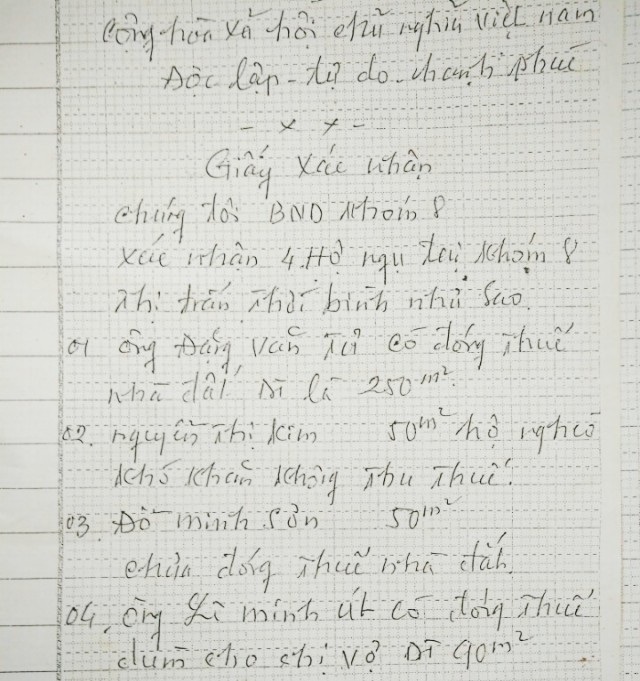 Cộng hòa xã hội chủ nghĩa việt nam
Độc lập - tự do - hạnh phúc
- x x -
Giấy xác nhận
chúng tôi BND khóm 8
xác nhận 4 Hộ ngụ tại khóm 8
thị trấn thới bình như sao.
01 ông Đặng văn Tư có đóng thuế
nhà đất DT là 250m².
02. nguyễn thị kim 50m² hộ nghèo
khó khăn không thu thuế.
03. Đỗ minh sơn 50m²
chưa đóng thuế nhà đất.
04. ông Lê minh út có đóng thuế
dùm cho chị vợ DT 90m²